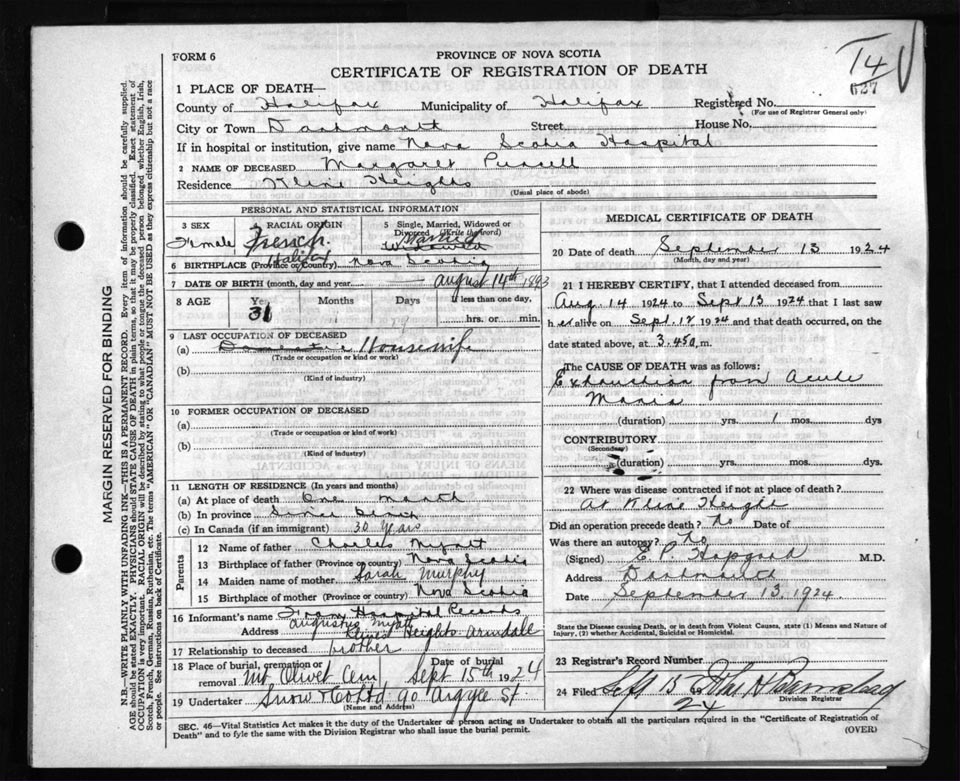 FORM 6
PROVINCE OF NOVA SCOTIA
T4
CERTIFICATE OF REGISTRATION OF DEATH
627
1 PLACE OF DEATH—
County of Halifax Municipality of Halifax Registered No.
(For use of Registrar General only)
City or Town Dartmouth Street House No.
If in hospital or institution, give name Nova Scotia Hospital
2 NAME OF DECEASED Margaret Pursell
Residence Kline Heights
(Usual place of abode)
PERSONAL AND STATISTICAL INFORMATION
3 SEX 4 RACIAL ORIGIN 5 Single, Married, Widowed or Divorced (Write the word)
Female French Married Widowed
Halifax
6 BIRTHPLACE (Province or Country) Nova Scotia
7 DATE OF BIRTH (month, day and year) August 14th 1893
8 AGE Years Months Days If less than one day,
31
hrs. or min.
9 LAST OCCUPATION OF DECEASED
(a) Domestic Housewife
(Trade or occupation or kind of work)
(b)
(Kind of industry)
10 FORMER OCCUPATION OF DECEASED
(a)
(Trade or occupation and kind of work)
(b)
(Kind of industry)
11 LENGTH OF RESIDENCE (In years and months)
(a) At place of death One month
(b) In province Since birth
(c) In Canada (if an immigrant) 30 Years
Parents
12 Name of father Charles Myatt
13 Birthplace of father (Province or country) Nova Scotia
14 Maiden name of mother Sarah Murphy
15 Birthplace of mother (Province or country) Nova Scotia
16 Informant's name From Hospital Records
Augustus Myatt
Address Klines Heights Armdale
17 Relationship to deceased brother
18 Place of burial, cremation or removal Mt Olivet Cem Date of burial Sept 15th 1924
19 Undertaker Snow & Co Ltd 90 Argyle St.
(Name and Address)
MEDICAL CERTIFICATE OF DEATH
20 Date of death September 13 1924
(Month, day and year)
21 I HEREBY CERTIFY, that I attended deceased from
Aug 14 1924 to Sept 13 1924 that I last saw
h er alive on Sept. 12 1924 and that death occurred, on the
date stated above, at 3.45 a. m.
The CAUSE OF DEATH was as follows:
Exhaustion from Acute
Mania
(duration) yrs. 1 mos. dys
CONTRIBUTORY
(Secondary)
(duration) yrs. mos. dys.
22 Where was disease contracted if not at place of death?
At Kline Height
Did an operation precede death? No Date of
Was there an autopsy? No
(Signed) E P Hopgood M.D.
Address Dartmouth
Date September 13, 1924
State the Disease causing Death, or in death from Violent Causes, state (1) Means and Nature of Injury, (2) whether Accidental, Suicidal or Homicidal.
23 Registrar's Record Number
24 Filed Sept 15 19 24
Division Registrar
SEC. 46—Vital Statistics Act makes it the duty of the Undertaker or person acting as Undertaker to obtain all the particulars required in the "Certificate of Registration of
Death" and to fyle the same with the Division Registrar who shall issue the burial permit.
(OVER)
MARGIN RESERVED FOR BINDING
N.B.—WRITE PLAINLY, WITH UNFADING INK—THIS IS A PERMANENT RECORD. Every item of information should be carefully supplied.
AGE should be stated EXACTLY. PHYSICIANS should STATE CAUSE OF DEATH in plain terms, so that it may be properly classified. Exact statement of
OCCUPATION is very important. RACIAL ORIGIN will be described by stating to what people or tongue the deceased person belonged whether English, Irish,
Scotch, French, German, Russian, Ruthenian, etc. The terms "AMERICAN" or "CANADIAN" MUST NOT BE USED as they express citizenship but not a race
or people. See instructions on back of Certificate.